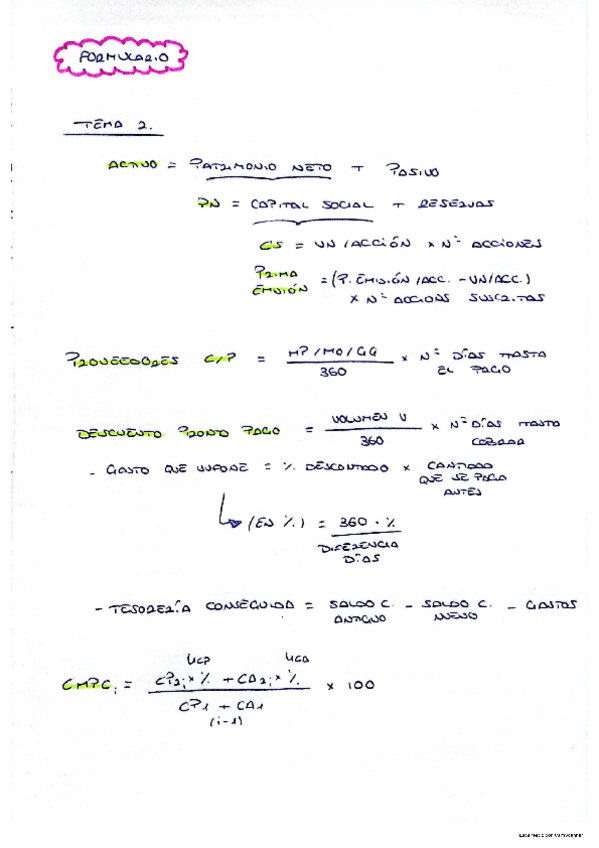 FORMULARIO
TEMA 2.
ACTIVO = PATRIMONIO NETO + PASIVO
PN = CAPITAL SOCIAL + RESERVAS
CS = VN/ACCIÓN × Nº ACCIONES
PRIMA EMISIÓN = (P. EMISIÓN/ACC. - VN/ACC.)
× Nº ACCIONS SUSCRITAS
PROVEEDORES C/P = MP/MO/GG / 360 × Nº DÍAS HASTA EL PAGO
DESCUENTO PRONTO PAGO = VOLUMEN V / 360 × Nº DÍAS HASTA COBRAR
- GASTO QUE SUPONE = % DESCONTADO × CANTIDAD QUE SE PAGA ANTES
↳ (EN %) = 360 · % / DIFERENCIA DÍAS
- TESORERÍA CONSEGUIDA = SALDO C. ANTIGUO - SALDO C. NUEVO - GASTOS
UCP UCA
CMPCi = CP2i × % + CA2i × % / CP1 + CA1 × 100
(i-1)